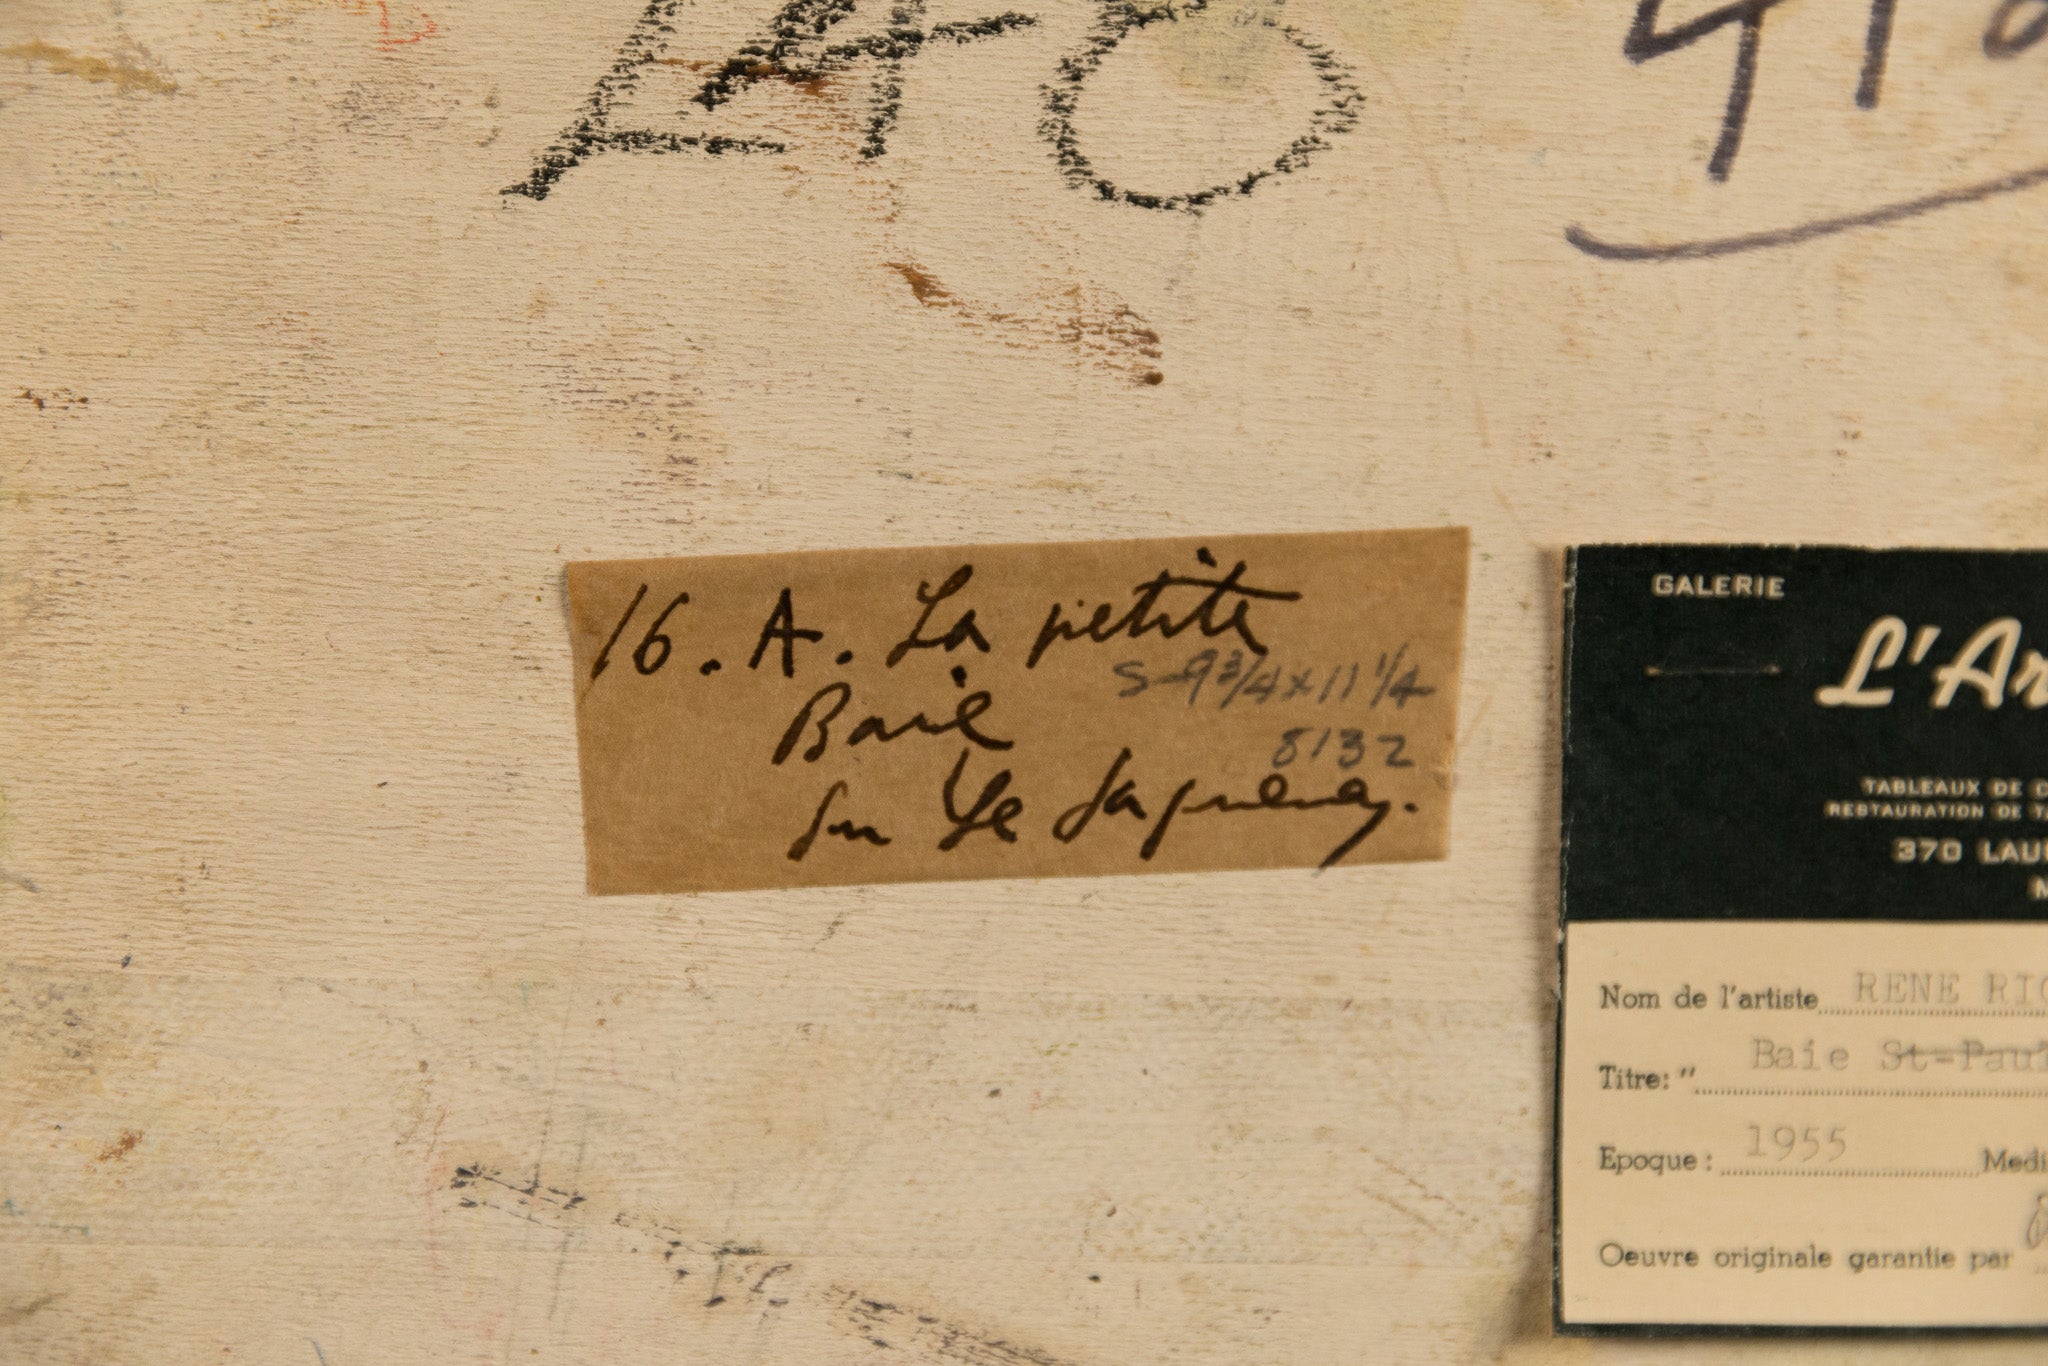 16. A. La petite
Baie
S-9 3/4 x 11 1/4
8132
Sur Le Saguenay.
GALERIE
L'Ar
TABLEAUX DE
RESTAURATION DE
370 LAU
Nom de l'artiste RENE RIC
Titre: " Baie St-Paul
Epoque: 1955 Medi
Oeuvre originale garantie par